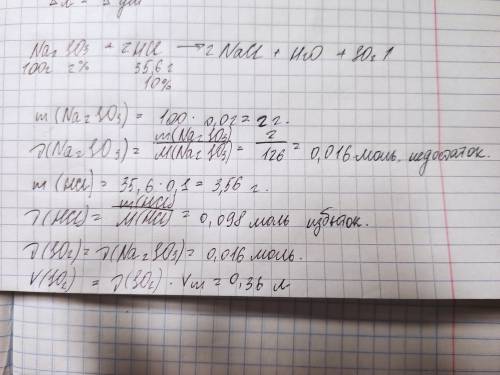 Na₂SO₃ + 2HCl → 2NaCl + H₂O + SO₂↑
100г 2% 35,6 г
10%
m(Na₂SO₃) = 100 · 0,02 = 2 г.
ν(Na₂SO₃) = m(Na₂SO₃)/M(Na₂SO₃) = 2/126 = 0,016 моль. недостаток.
m(HCl) = 35,6 · 0,1 = 3,56 г.
ν(HCl) = m(HCl)/M(HCl) = 0,098 моль избыток.
ν(SO₂) = ν(Na₂SO₃) = 0,016 моль.
V(SO₂) = ν(SO₂) · Vm = 0,36 л